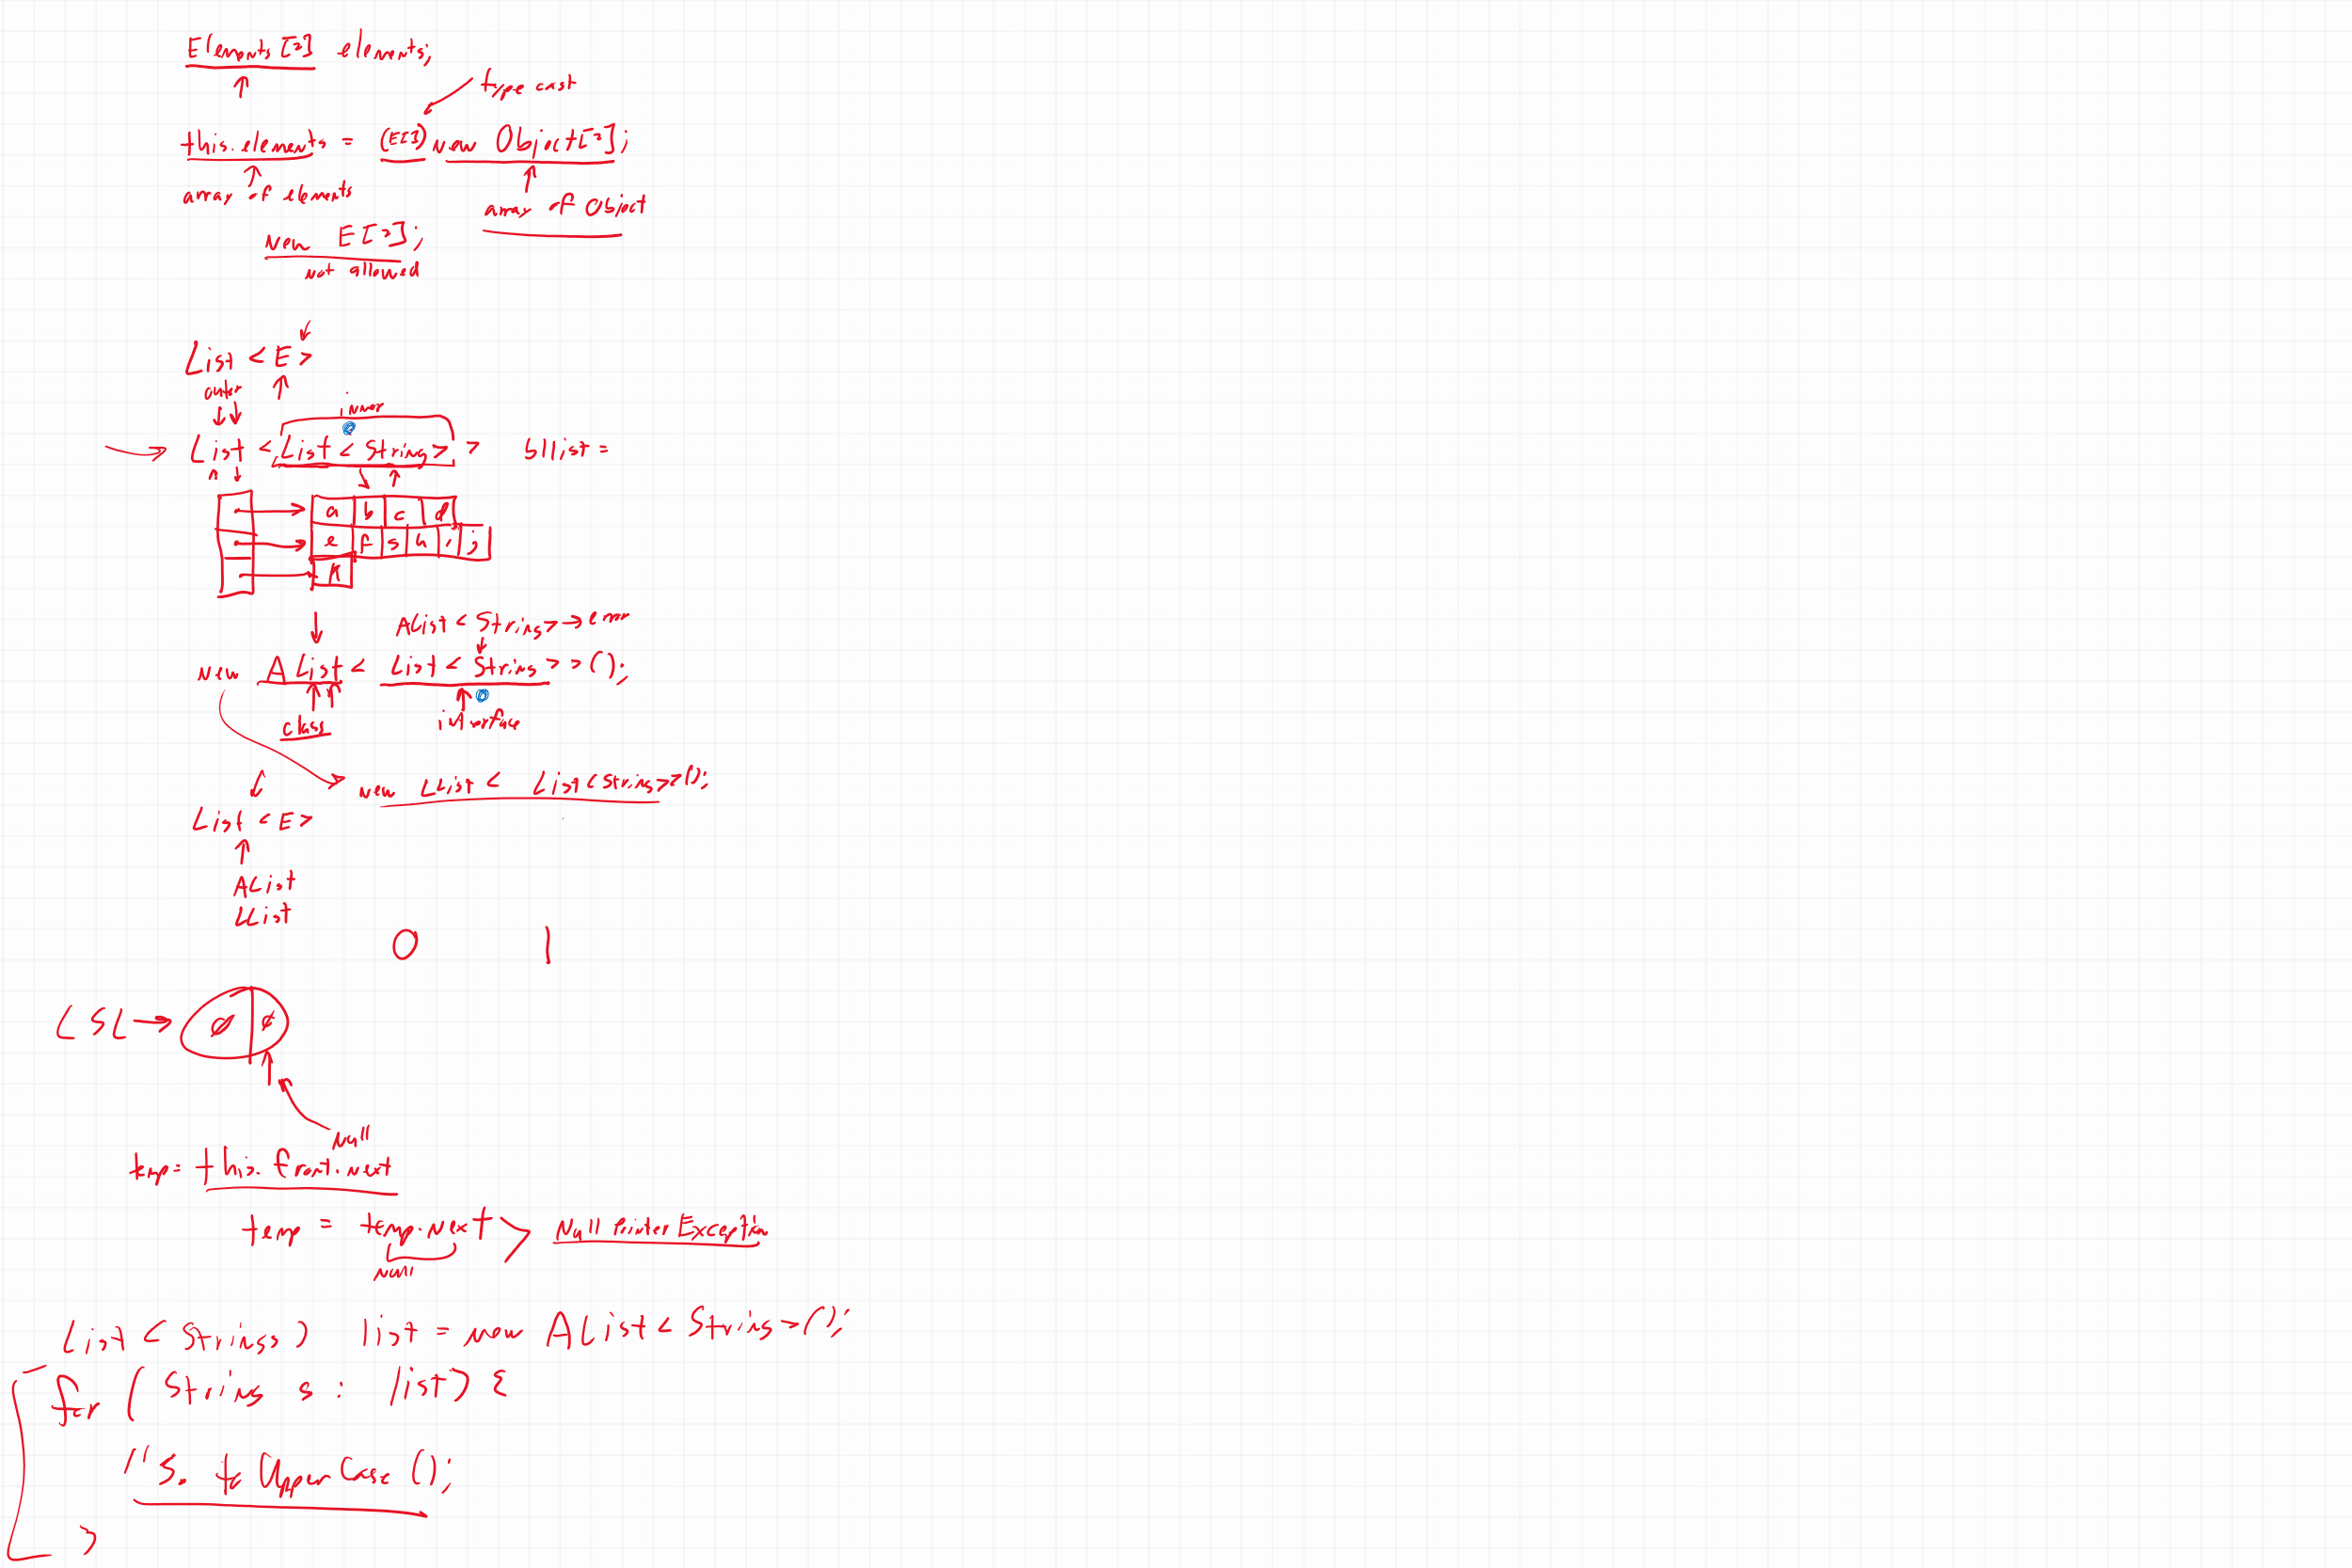 Elements[2] elements;
type cast
this.elements = (E[]) new Object[2];
array of elements
array of Object
new E[2];
not allowed
List <E>
outer
inner
List <List< String> > bllist =
a b c d
e f g h i j
k
AList < String> → error
new AList < List < String > > ();
class
interface
new LList < List<String>>();
List <E>
AList
LList
0 1
LSL → ∅ ∅
Null
temp = this.front.next
temp = temp.next > Null Pointer Exception
Null
List < Strings > list = new AList < String >();
for ( String s : list) {
s. to Upper Case ();
}